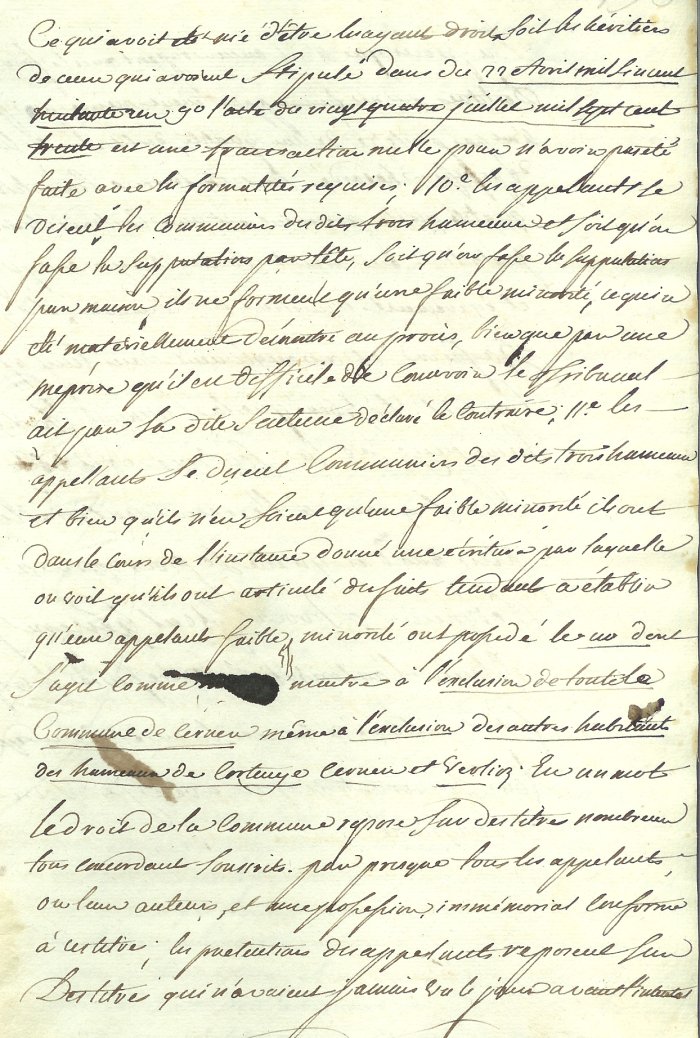 Ce qui avoit nié d'être les ayant droit, soit les héritiers
de ceux qui avoient Stipulé dans du 22 Avril mil six cent
huitante un 9o l'acte du vingt quatre juillet mil sept cent
trente est une transaction nulle pour n'avoir pas été
faite avec les formalités requises. 10.e les appelants se
disent les Communiers des dits trois hameaux et soit qu'on
fasse la supputation par tête, soit qu'on fasse la supputation
par maison, ils ne forment qu'une faible minorité, ce qui a
été matériellement démontré au procès, bien que par une
méprise qu'il est difficile de Concevoir le Tribunal
ait par sa dite Sentence déclaré le Contraire; 11.e les
appelants Se disent Communiers des dits trois hameaux
et bien qu'ils n'en soient qu'une faible minorité ils ont
dans le cours de l'instance donné une écriture par laquelle
on voit qu'ils ont articulé des faits tendants a établir
qu'eux appelants faible minorité ont possedé le dont
s'agit Comme maitre à l'exclusion de toute la
Commune de Cernex même à l'exclusion des autres habitants
des hameaux de Cortenge Cernex et Verlioz. En un mot
le droit de la Commune repose Sur des titres nombreux
tous concordant Souscrits par presque tous les appelants
ou leurs auteurs, et une possession immémorial Conforme
à ces titres; les prétentions des appelants reposent Sur
Des titres qui n'avaient jamais vu le jour avant